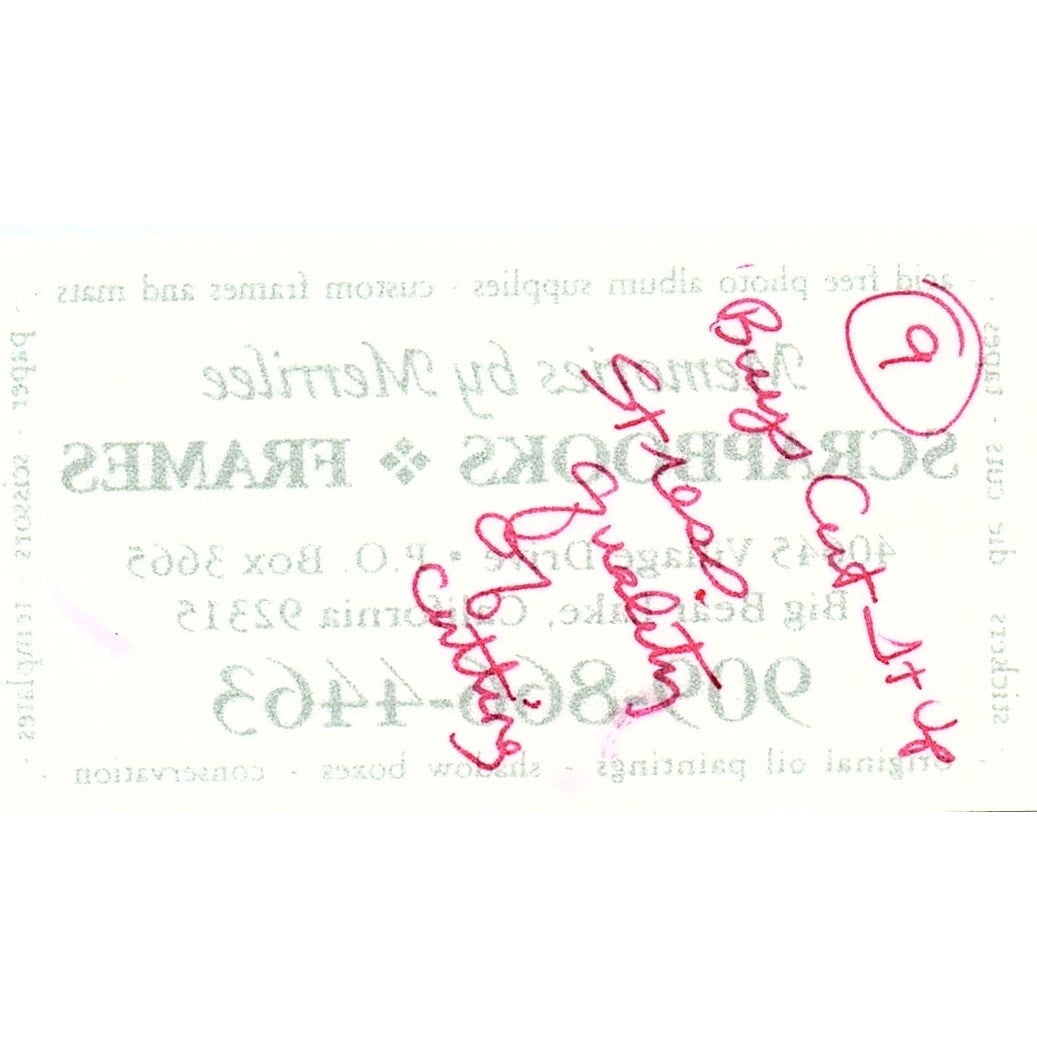 9
Buy Cut-It Up
Stress
quality
of
Cutting
acid free photo album supplies · custom frames and mats
Memories by Merrilee
SCRAPBOOKS ❖ FRAMES
Village Drive • P.O. Box 3665
Big Bear Lake, California 92315
909-866-4463
original oil paintings · shadow boxes · conservation
paper · scissors · templates
stickers · die cuts · tapes